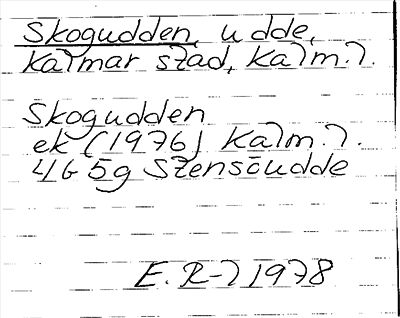 Skogudden, udde,
Kalmar stad, Kalm.l.
Skogudden
ek (1976) Kalm.l.
4G 5g Stensöudde
E.R-l 1978